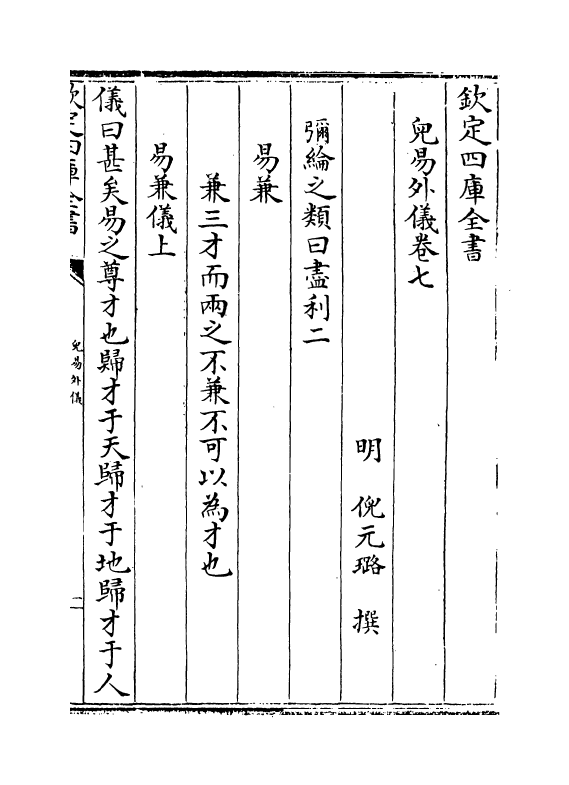 欽定四庫全書
兒易外儀卷七
明 倪元璐 撰
彌綸之類曰盡利二
易兼
兼三才而兩之不兼不可以為才也
易兼儀上
儀曰甚矣易之尊才也歸才于天歸才于地歸才于人
欽定四庫全書
兒易外儀